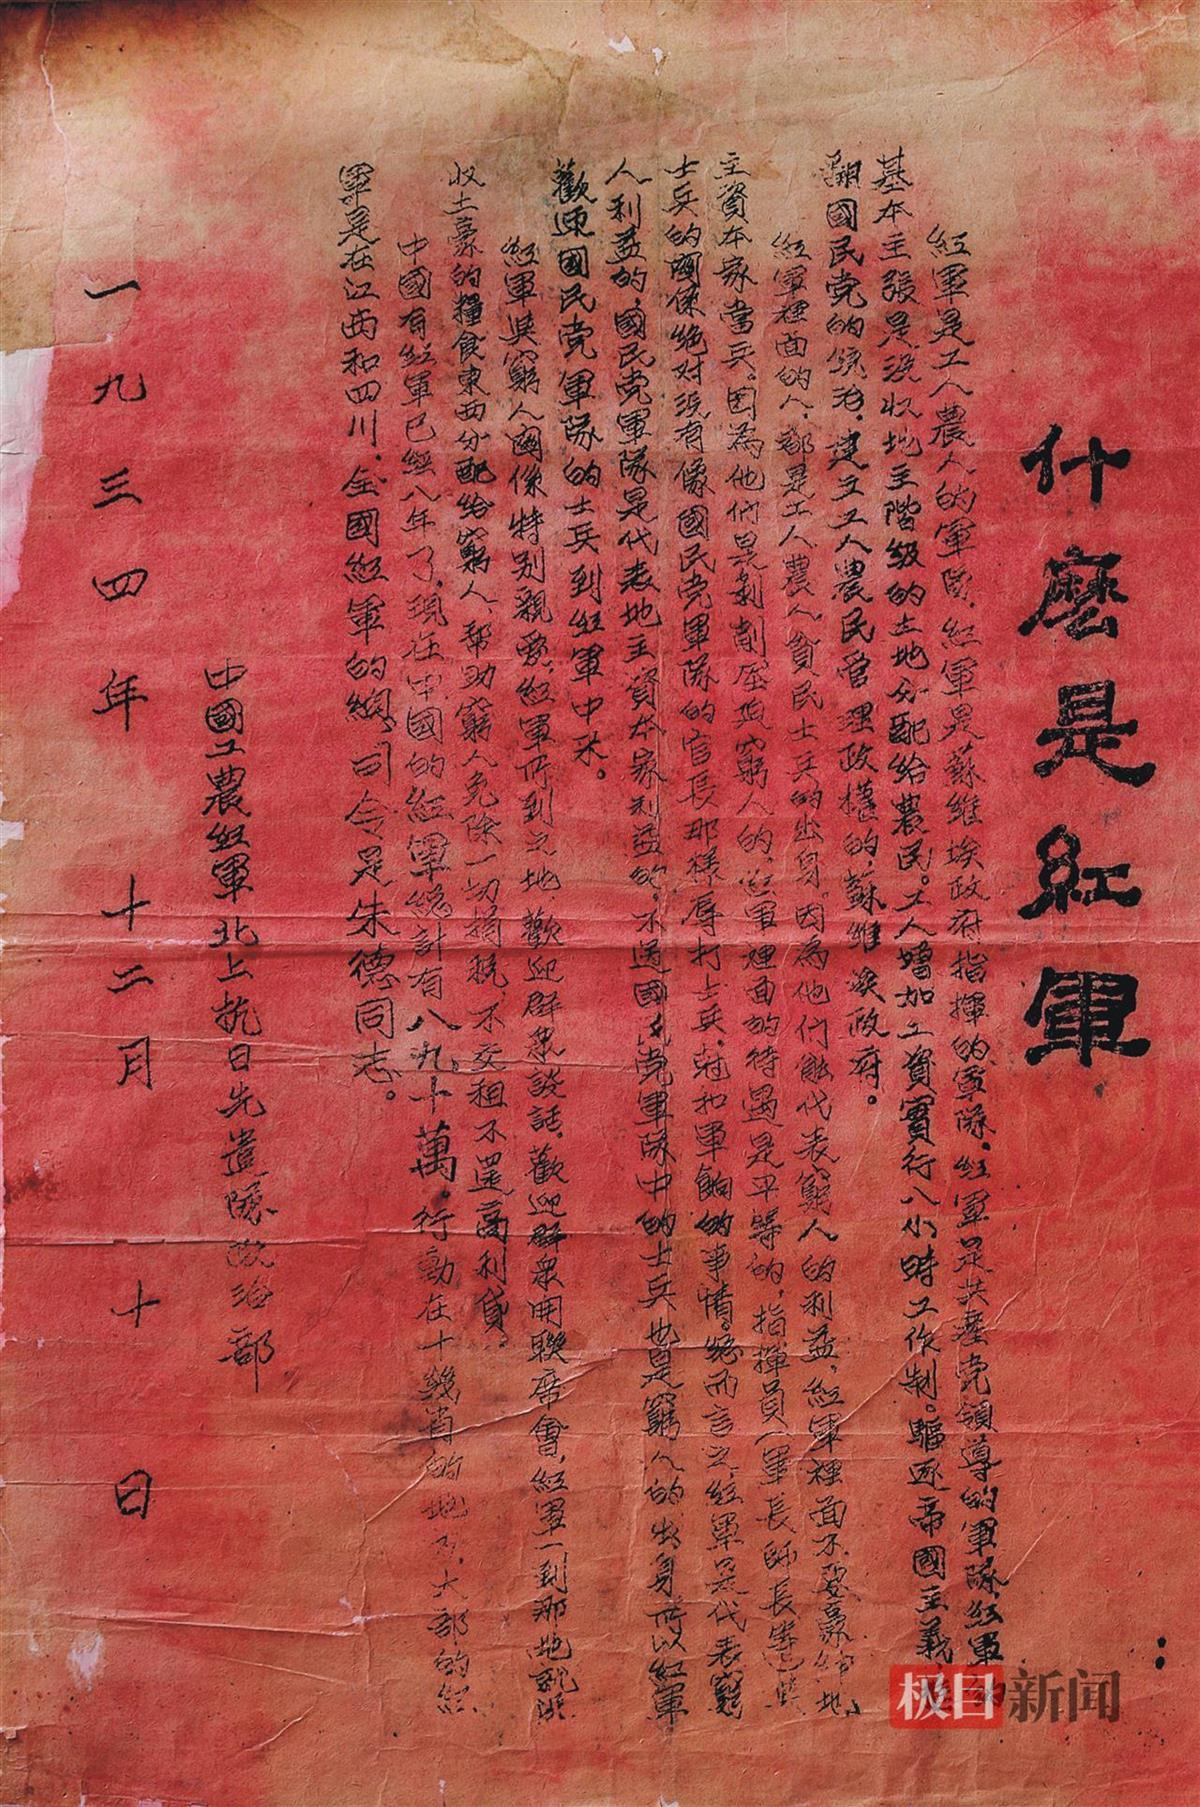 什麽是紅軍
紅軍是工人農人的軍隊，紅軍是蘇維埃政府指揮的軍隊，紅軍是共產党領導的軍隊，紅軍
基本主張是没收地主階級的土地分配給農民。工人增加工資實行八小時工作制。驅逐帝國主義
翻國民党的統治，建立工人農民官理政權的，蘇維埃政府。
紅軍裡面的人，都是工人農人貧民士兵的出身，因為他們能代表窮人的利益，紅軍裡面不要豪紳地
主資本家當兵。因為他們是剝削壓迫窮人的，紅軍裡面的待遇是平等的，指揮員（軍長師長等
士兵的關係絶对没有像國民党軍隊的官長那樣辱打士兵，尅扣軍餉的事情。總而言之紅軍是代表窮
人利益的，國民党軍隊是代表地主資本家利益的。不過國民党軍隊中的士兵也是窮人的出身所以紅軍
歡迎國民党軍隊的士兵到紅軍中來。
紅軍與窮人關係特别親愛，紅軍所到之地，歡迎群衆談話，歡迎群衆開聯席會，紅軍一到那地就没
收土豪的糧食東西分配給窮人，帮助窮人免除一切捐税，不交租不還高利貸。
中國有紅軍已經八年了，現在中國的紅軍總計有八九十萬，行動在十幾省的地方，大部的紅
軍是在江西和四川，全國紅軍的總司令是朱德同志。
中國工農紅軍北上抗日先遣隊政治部
一九三四年十二月十日
极目新闻